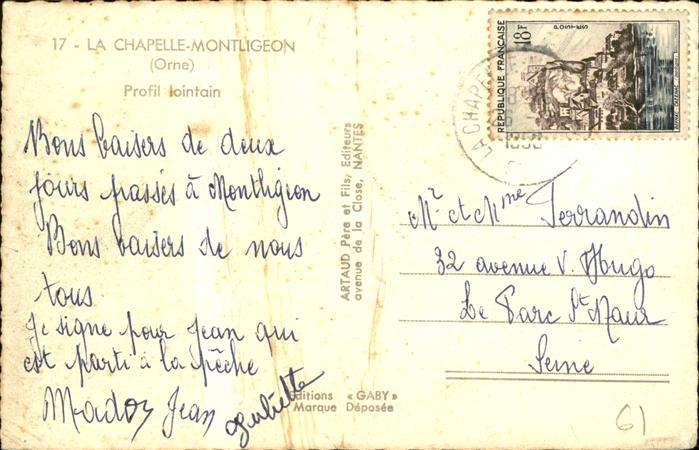 17 - LA CHAPELLE-MONTLIGEON
(Orne)
Profil lointain
Bons baisers de deux
jours passés à Montligeon
Bons baisers de nous
tous.
Je signe pour Jean qui
est parti à la pêche
Mado Jean
ARTAUD Père et Fils, Editeurs
avenue de la Close, NANTES
Editions « GABY »
Marque Déposée
18F
POSTES
REPUBLIQUE FRANÇAISE
LA CHAP
Mr et Mme Ferrandin
32 avenue V. Hugo
Le Parc St Maur
Seine
61